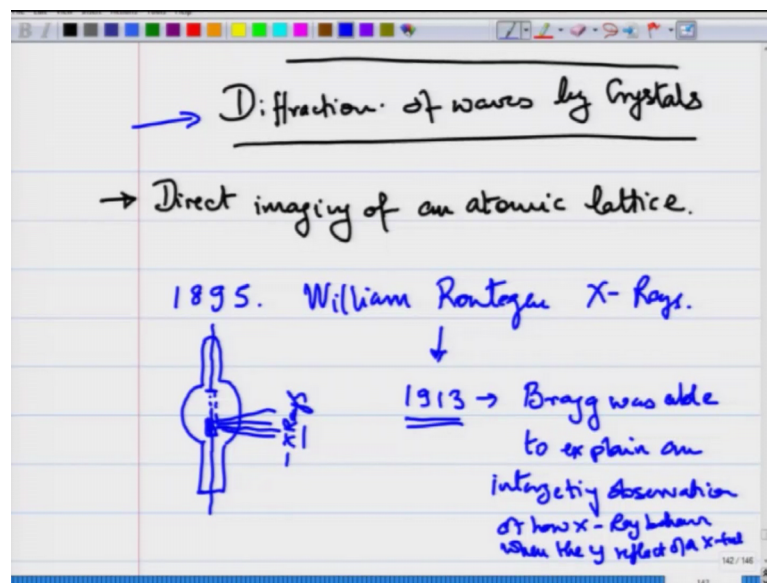 Diffraction of waves by Crystals
→ Direct imaging of an atomic lattice.
1895. William Rontegen X-Rays.
X Rays
1913 → Bragg was able
to explain an
intergeting observation
of how X-Ray behave
when they reflect of a x-tal
142 / 146